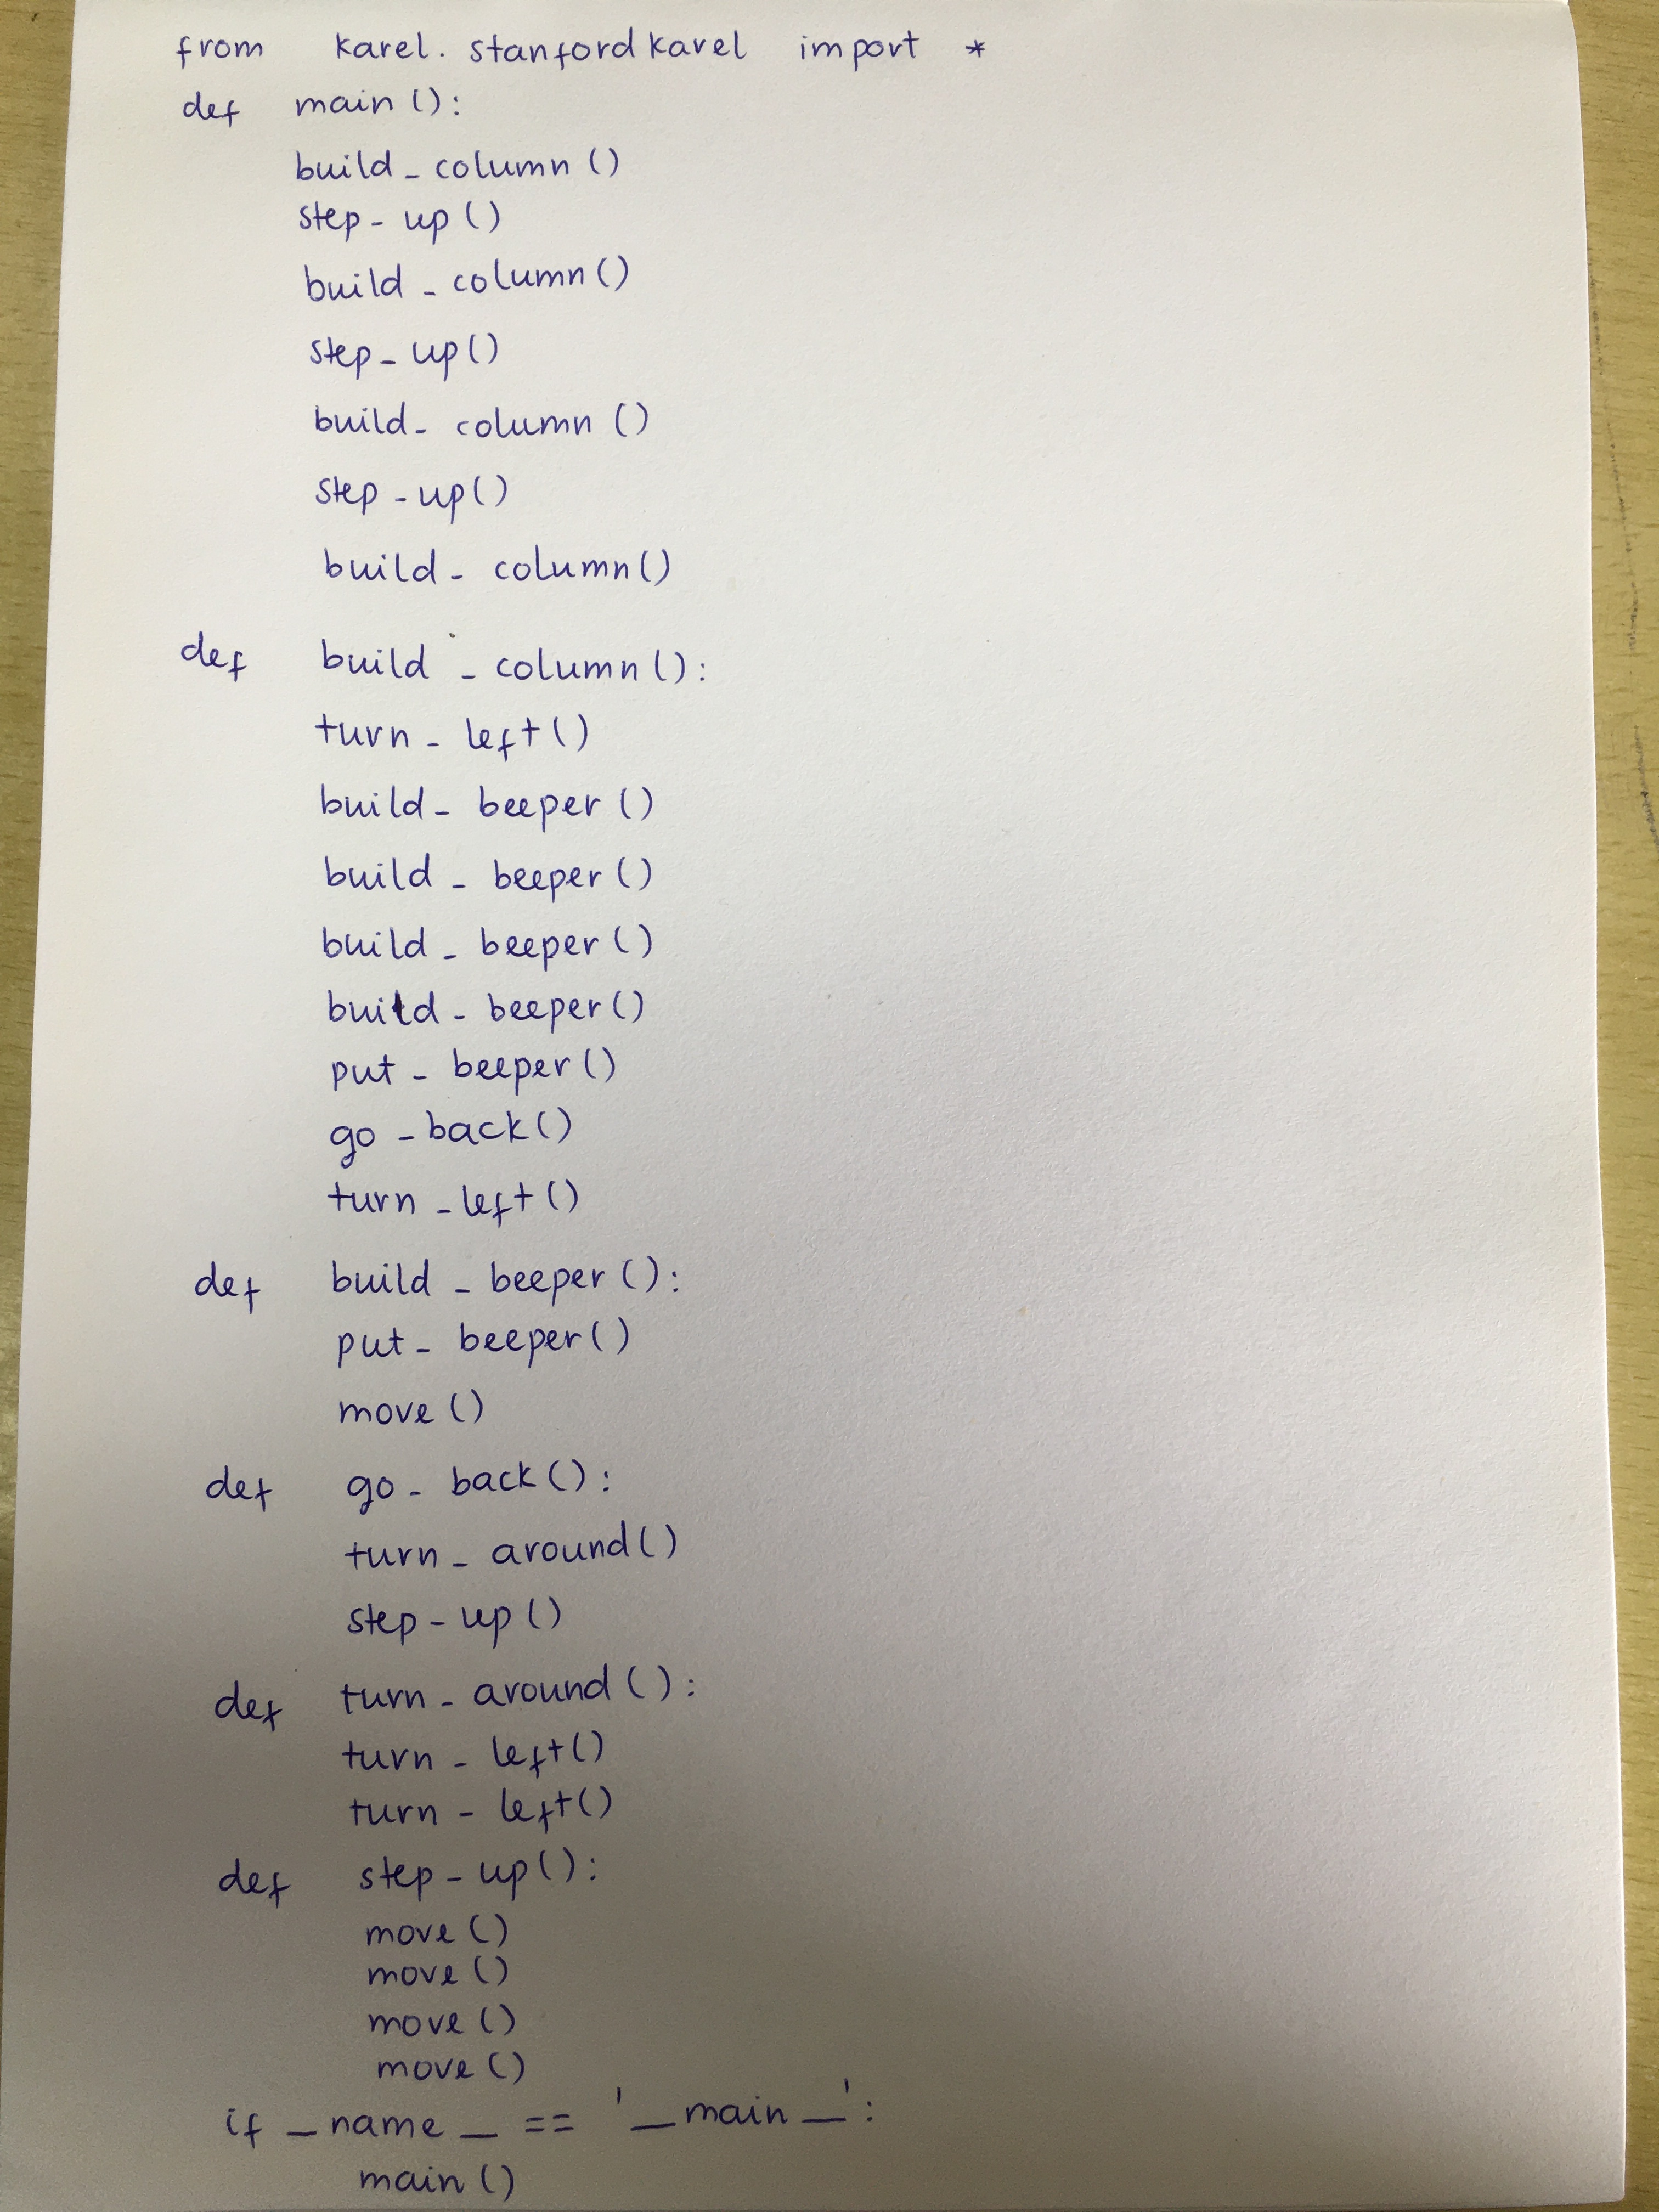 from karel.stanfordkarel import *
def main():
build_column()
step_up()
build_column()
step_up()
build_column()
step_up()
build_column()
def build_column():
turn_left()
build_beeper()
build_beeper()
build_beeper()
build_beeper()
put_beeper()
go_back()
turn_left()
def build_beeper():
put_beeper()
move()
def go_back():
turn_around()
step_up()
def turn_around():
turn_left()
turn_left()
def step_up():
move()
move()
move()
move()
if __name__ == '__main__':
main()